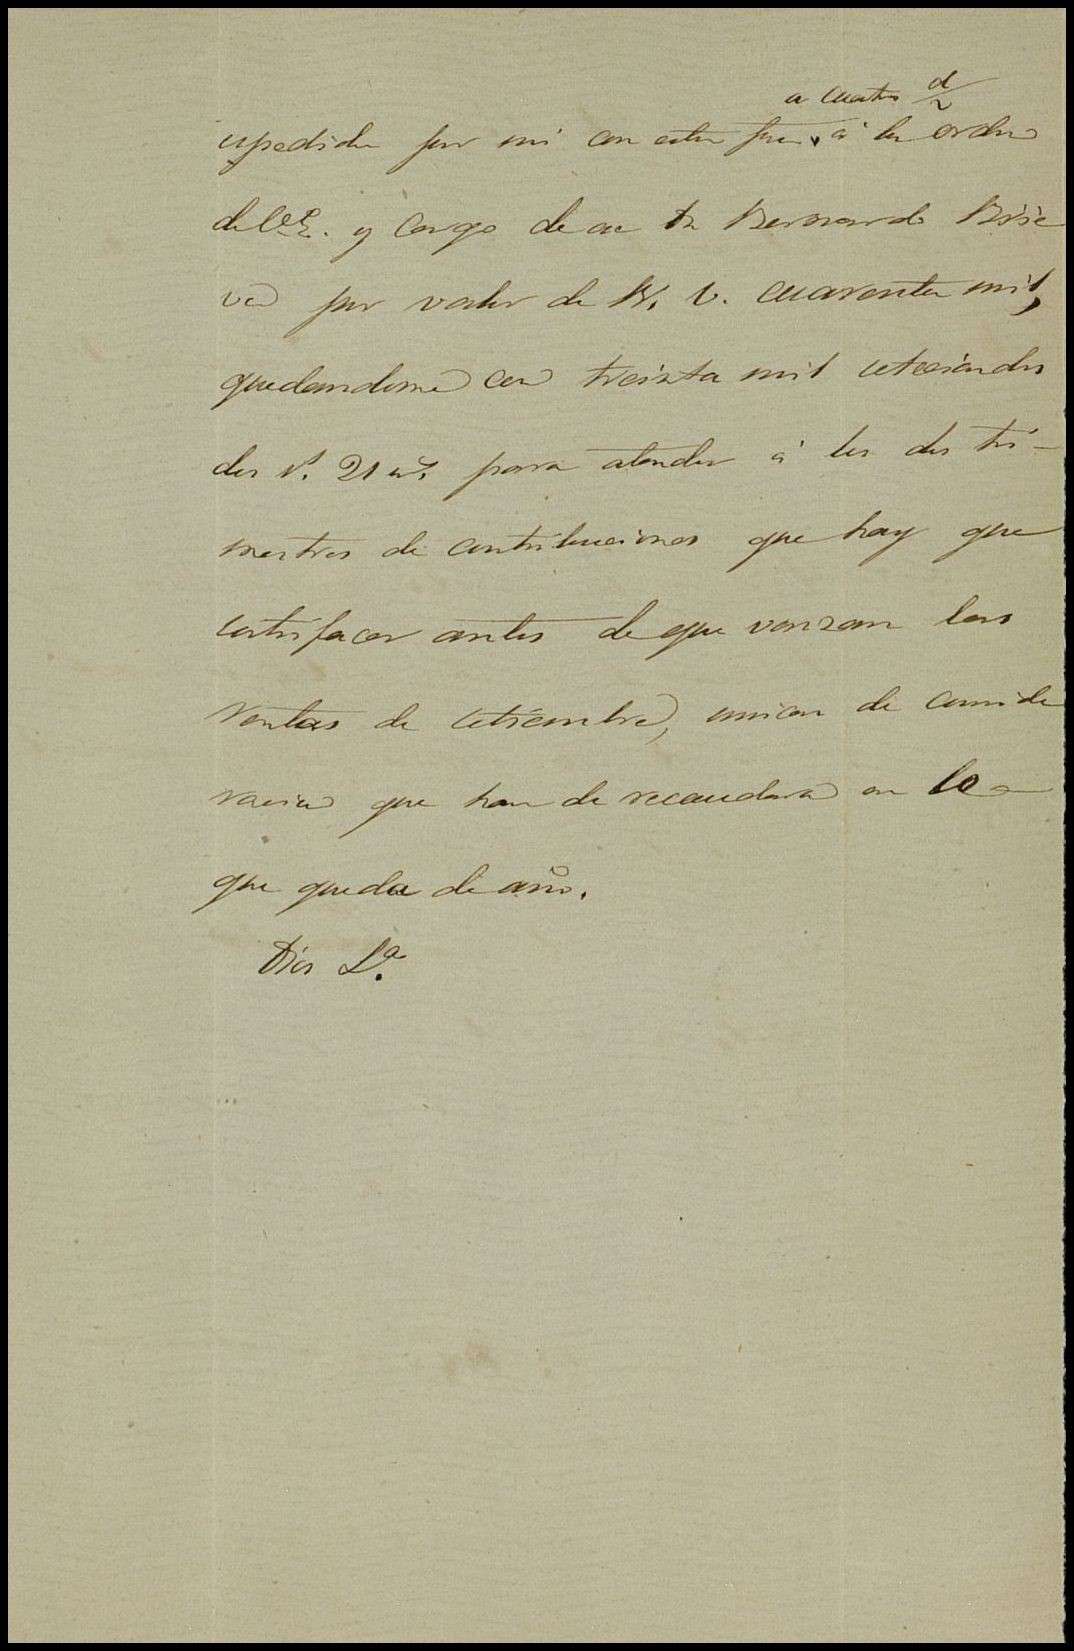 a cuatro d/v
espedida por mi con esta fha. à la orden
de V.E. y cargo de D. Bernardo
por valor de R. V. cuarenta mil,
quedandome con treinta mil setecientos
dos r.s 21 m.s para atender à los dos tri-
mestres de contribuciones que hay que
satisfacer antes de que venzan las
rentas de setiembre, unicas de conside
racion que han de recaudarse en lo
que queda de año.
Dios L.a